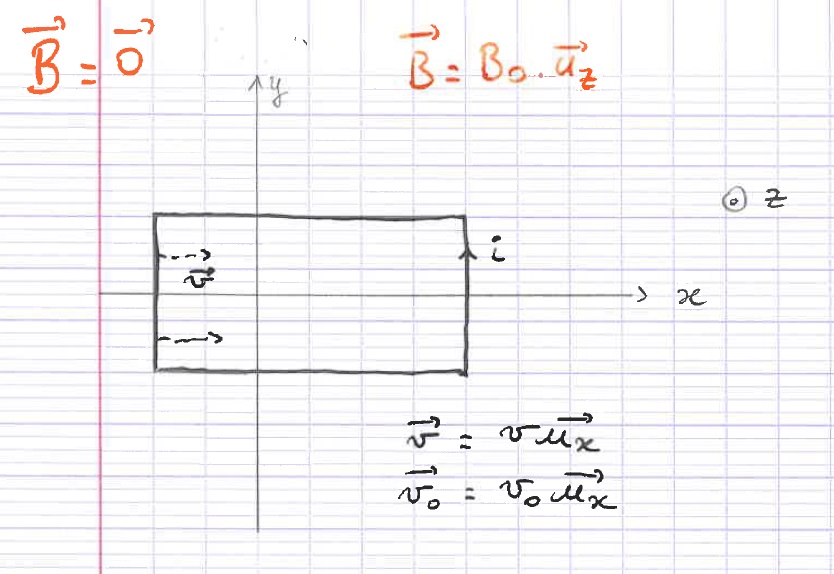 B⃗ = 0⃗
B⃗ = B₀.u⃗z
y
z
i
v⃗
x
v⃗ = v u⃗x
v⃗₀ = v₀ u⃗x